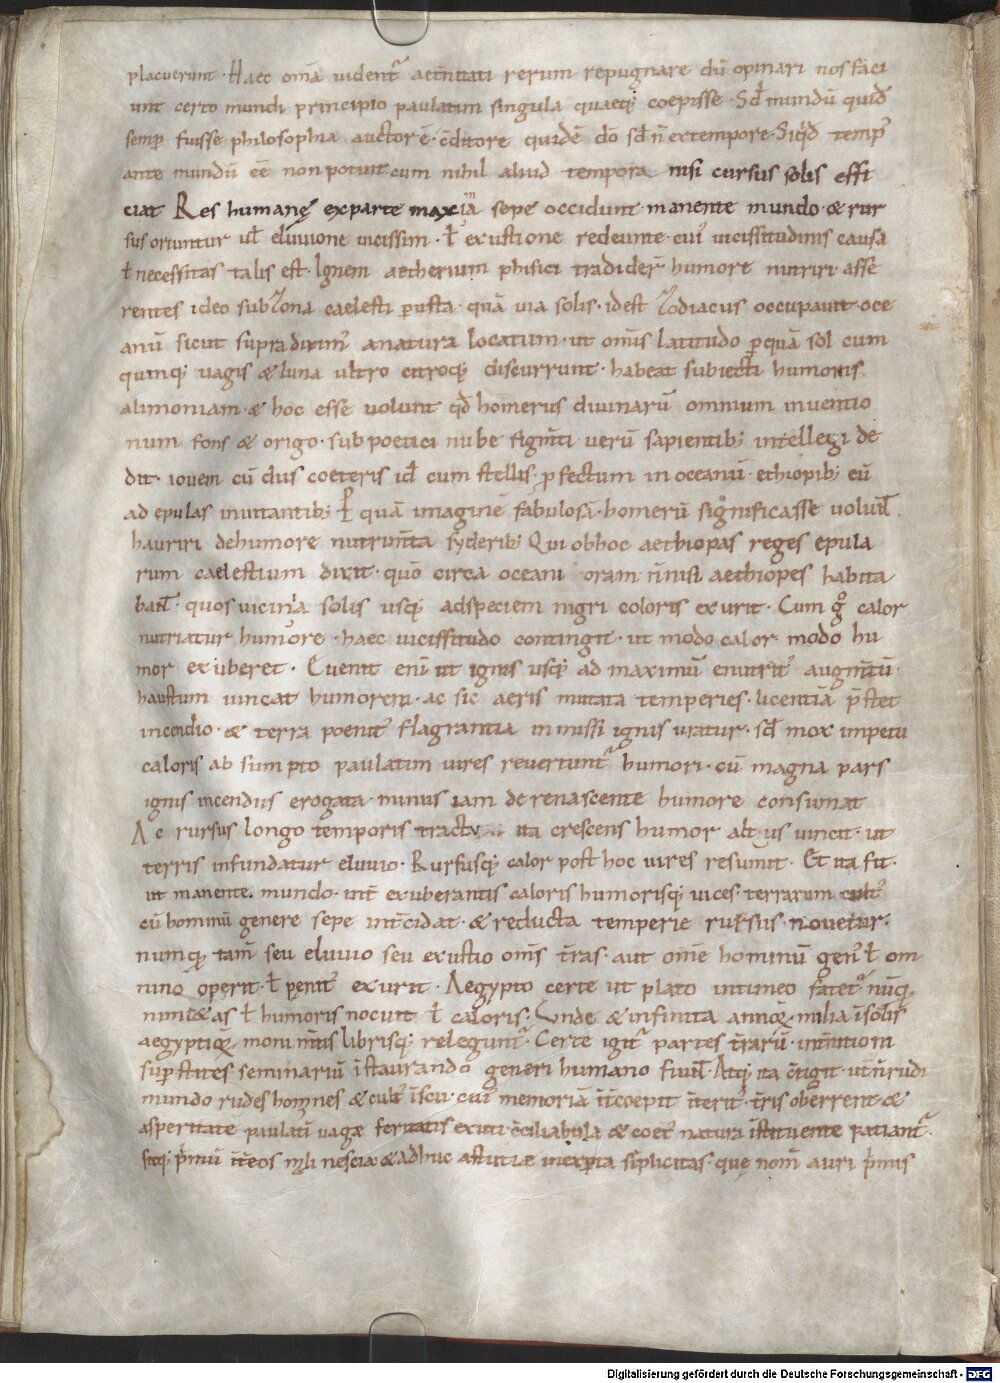 placuerunt · Haec om̄a uident᷑ aet̄nitati rerum repugnare dū opinari nos faci
unt certo mundi principio paulatim singula quaeq; coepisse · Sꝺ mundū quidē
semp̄ fuisse philosophia auctor ē · c̄ditore quidē dō sꝺ n̄ ex tempore · Siq̄d temp᷒
ante mundū ēē non potuit cum nihil aliud tempora nisi cursus solis effi
ciat Res humanę ex parte maxima sepe occidunt manente mundo · & rur
sus oriuntur ul eluuione uicissim · ł exustione redeunte · cui᷒ uicissitudinis causa
ł necessitas talis est · Ignem aetherium phisici tradider̄ humore nutriri · asse
rentes ideo sub zona caelesti p̱usta · quā uia solis · id est zodiacus occupauit · oce
anū sicut supra dixim᷒ a natura locatum · ut omīs latitudo p̱ quā sol cum
quinq; uagis & luna ultro citroq; discurrunt · habeat subiecti humoris
alimoniam · & hoc esse uolunt qđ homerus diuinarū omnium inuentio
num fons & origo · sub poetici nube figm̄ti uerū sapientib; intellegi de
dit · iouem cū diis coeteris id cum stellis · p̱fectum in oceanū · ethiopib; eū
ad epulas inuitantib; P̱ quā imaginē fabulosā · homerū significasse uolun̄
hauriri de humore nutrim̄ta syderib; Qui ob hoc aethiopas reges epula
rum caelestium dixit · quō circa oceani oram n̄ nisi aethiopes habita
ban̄ · quos uicinia solis usq; ad speciem nigri coloris exurit · Cum gͦ calor
nutriatur humore · haec uicissitudo contingit · ut modo calor modo hu
mor exuberet · Euenit enī ut ignis usq; ad maximū enutrit᷒ augm̄tū ·
haustum uincat humorem · ac sic aeris mutata temperies · licentiā p̄stet
incendio · & terra poenit᷒ flagrantia inmissi ignis uratur · sꝺ mox impetu
caloris absumpto paulatim uires reuertunt᷑ humori · cū magna pars
ignis incendiis erogata minus iam de renascente humore consumat
Ac rursus longo temporis tractu ita crescens humor altius uincit · ut
terris infundatur eluuio · Rursusq; calor post hoc uires resumit · Et ita fit ·
ut manente mundo · int̄ exuberantis caloris humorisq; uices · terrarum cult᷒
cū hominū genere sepe int̄cidat · & reducta temperie rursus nouetur ·
numq; tam̄ seu eluuio seu exustio om̄s t̄ras · aut om̄e hominū gen᷒ ł om
nino operit · ł pęnit᷒ exurit · Aegypto certe ut plato in timeo fatet᷑ · nūq;
nimietas ł humoris nocuit ł caloris · Unde & infinita annoꝝ milia ī solis
aegyptioꝝ monim̄tis librisq; releguntur᷑ · Certe igit᷑ partes t̄rarū int̄nitioni
sup̱stites seminariū īstaurando generi humano fiun̄ · Atq; ita c̄tigit · ut n̄ rudi
mundo rudes homines & cult᷒ īscii · cui᷒ memoriā īt̄coepit īterit᷒ · t̄ris oberrent · &
asperitate paulatī uagae feritatis exuti · c̄ciliabula & coet᷒ natura īstituente patiant᷑ ·
sitq; p̄mū īt̄ eos mali nescia & adhuc astutiae inexp̱ta sīplicitas · quę nom̄ auri p̄mis